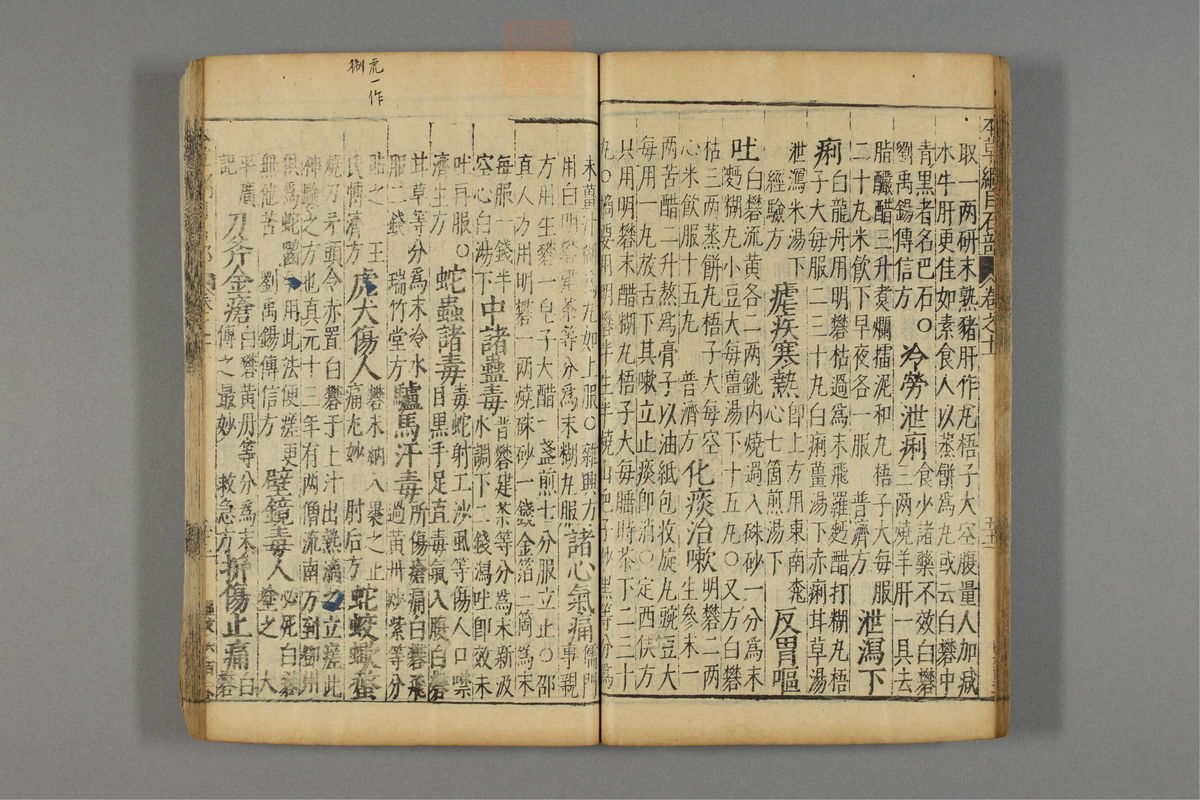 本草綱目石部 卷之十一
取一兩研末熟豬肝作丸梧子大空腹量人加減
水牛肝更佳如素食人以蒸餅為丸或云白礬中
青黑者名巴石○冷勞泄痢食少諸藥不效白礬
三兩燒羊肝一具去
劉禹錫傳信方
脂釅醋三升煮爛擂泥和丸梧子大每服
二十丸米飲下早夜各一服 普濟方 泄瀉下
痢白龍丹用明礬枯過為末飛羅麪醋打糊丸梧
子大每服二三十丸白痢薑湯下赤痢甘草湯
泄瀉米湯下 瘧疾寒熱即上方用東南桃
經驗方 心七箇煎湯下 反胃嘔
吐白礬流黃各二兩銚內燒過入硃砂一分為末
麪糊丸小豆大每薑湯下十五丸○又方白礬
枯三兩蒸餅丸梧子大每空 化痰治嗽明礬二兩
心米飲服十五丸 普濟方 生參末一
兩苦醋二升熬為膏子以油紙包收旋丸豌豆大
每用一丸放舌下其嗽立止痰即消○定西侯方
只用明礬末醋糊丸梧子大每睡時茶下二三十
丸○摘要用明礬半生半燒山梔子炒黑等分為
末薑汁糊為丸如上服○雜興方 諸心氣痛儒門
用白明礬建茶等分為末糊丸服 事親
方用生礬一皂子大醋一盞煎七分服立止○邵
真人方用明礬一兩燒硃砂一錢金箔三箇為末
每服一錢半 中諸蠱毒晉礬建茶等分為末新汲
空心白湯下 水調下二錢瀉吐即效未
吐再服○ 蛇蟲諸毒毒蛇射工沙虱等傷人口噤
濟生方 目黑手足直毒氣入腹白礬
甘草等分為末冷水 驢馬汗毒所傷瘡痛白礬飛
服二錢 瑞竹堂方 過黃丹炒紫等分
貼之 王 虎犬傷人礬末納入裹之止
氏博濟方 痛尤妙 肘后方 蛇蛟蠍螫
燒刀矛頭令赤置白礬于上汁出熱滴之立瘥此
神驗之方也真元十三年有兩僧流南方到鄧州
俱為蛇齧令用此法便瘥更 壁鏡毒人必死白礬
無他苦 劉禹錫傳信方 塗之 太
平廣 刀斧金瘡白礬黃丹等分為末 折傷止痛白礬
記 傅之最妙 救急方
虎一作
猘